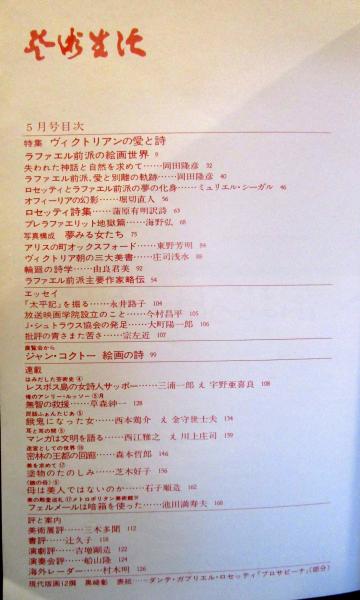 芸術生活
5月号目次
特集 ヴィクトリアンの愛と詩
ラファエル前派の絵画世界 9
失われた神話と自然を求めて……岡田隆彦 32
ラファエル前派、愛と別離の軌跡……岡田隆彦 40
ロセッティとラファエル前派の夢の化身……ミュリエル・シーガル 46
オフィーリアの幻影……堀切直人 56
ロセッティ詩集……蒲原有明訳詩 63
プレラファエリット地獄篇……海野弘 68
写真構成 夢みる女たち 75
アリスの町オックスフォード……東野芳明 84
ヴィクトリア朝の三大美書……庄司浅水 88
輪廻の詩学……由良君美 92
ラファエル前派主要作家略伝 54
エッセイ
「太平記」を掘る……永井路子 104
放送映画学院設立のこと……今村昌平 105
J・シュトラウス協会の発足……大町陽一郎 106
批評の青さまた苦さ……宗左近 107
展覧会から
ジャン・コクトー 絵画の詩 99
連載
はみだした芸術史④
レスボス島の女詩人サッポー……三浦一郎 え 宇野亜喜良 108
俺のアンリー・ルソー ⑤月
無智の救援……草森紳一 128
民話ふぁんたじあ⑤
餓鬼になった女……西本鶏介 え 金守世士夫 134
耳と耳の間⑤
マンガは文明を語る……西江雅之 え 川上庄司 139
迷宮としての世界⑩
密林の王都の回廊……森本哲郎 146
美を求めて⑰
塗物のたのしみ……芝木好子 156
母は美人ではないのか……石子順造 162
フェルメールは暗箱を使った……池川満寿夫 168
評と案内
美術展評……三木多聞 112
書評……辻久子 118
演劇評……吉増剛造 122
演奏会評……船山隆 124
海外レーダー……村木明 126
現代版画12撰 黒崎彰 表紙……ダンテ・ガブリエル・ロセッティ「プロサピーナ」(部分)